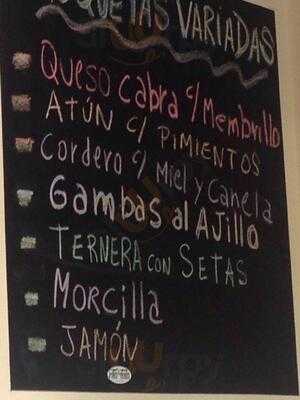 QUETAS VARIADAS
Queso Cabra c/ Membrillo
ATÚN C/ PIMIENTOS
Cordero c/ Miel y Canela
Gambas al AJillo
TERNERA CON SETAS
MORCilla
JAMÓN